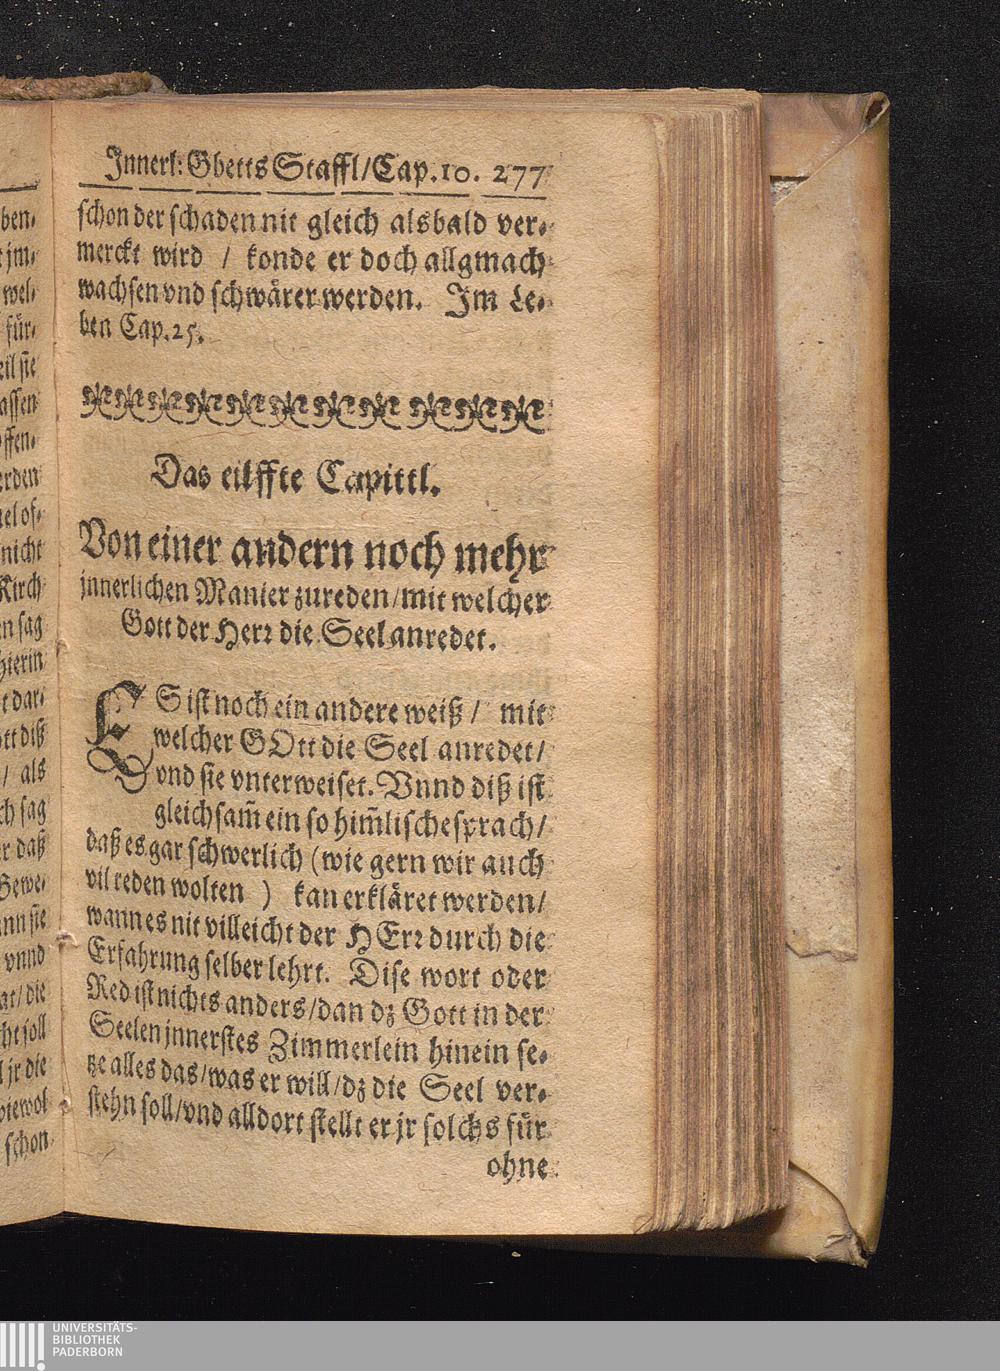 Innerl: Gbetts Staffl/Cap.10. 277
schon der schaden nit gleich alsbald ver-
merckt wird / konde er doch allgmach
wachsen vnd schwärer werden. Im Le-
ben Cap.25.
Das eilffte Capittl.
Von einer andern noch mehr
jnnerlichen Manier zureden/mit welcher
Gott der Herr die Seel anredet.
ES ist noch ein andere weiß / mit
welcher GOtt die Seel anredet/
vnd sie vnterweiset. Vnnd diß ist
gleichsam̃ ein so him̃lische sprach/
daß es gar schwerlich (wie gern wir auch
vil reden wolten ) kan erkläret werden/
wann es nit villeicht der HErr durch die
Erfahrung selber lehrt. Dise wort oder
Red ist nichts anders/dan dz Gott in der
Seelen jnnerstes Zimmerlein hinein se-
tze alles das/was er will/dz die Seel ver-
stehn soll/vnd alldort stellt er jr solchs für
ohne
ben-
jm-
wel-
für-
eil sie
assen
offen-
erden
nel of-
nicht
Kirch
n sag
hierin
t dar-
ott diß
/ als
ch sag
r daß
Gewe-
nn sie
vnnd
at/die
cht soll
l jr die
wiewol
schon
UNIVERSITÄTS-
BIBLIOTHEK
PADERBORN